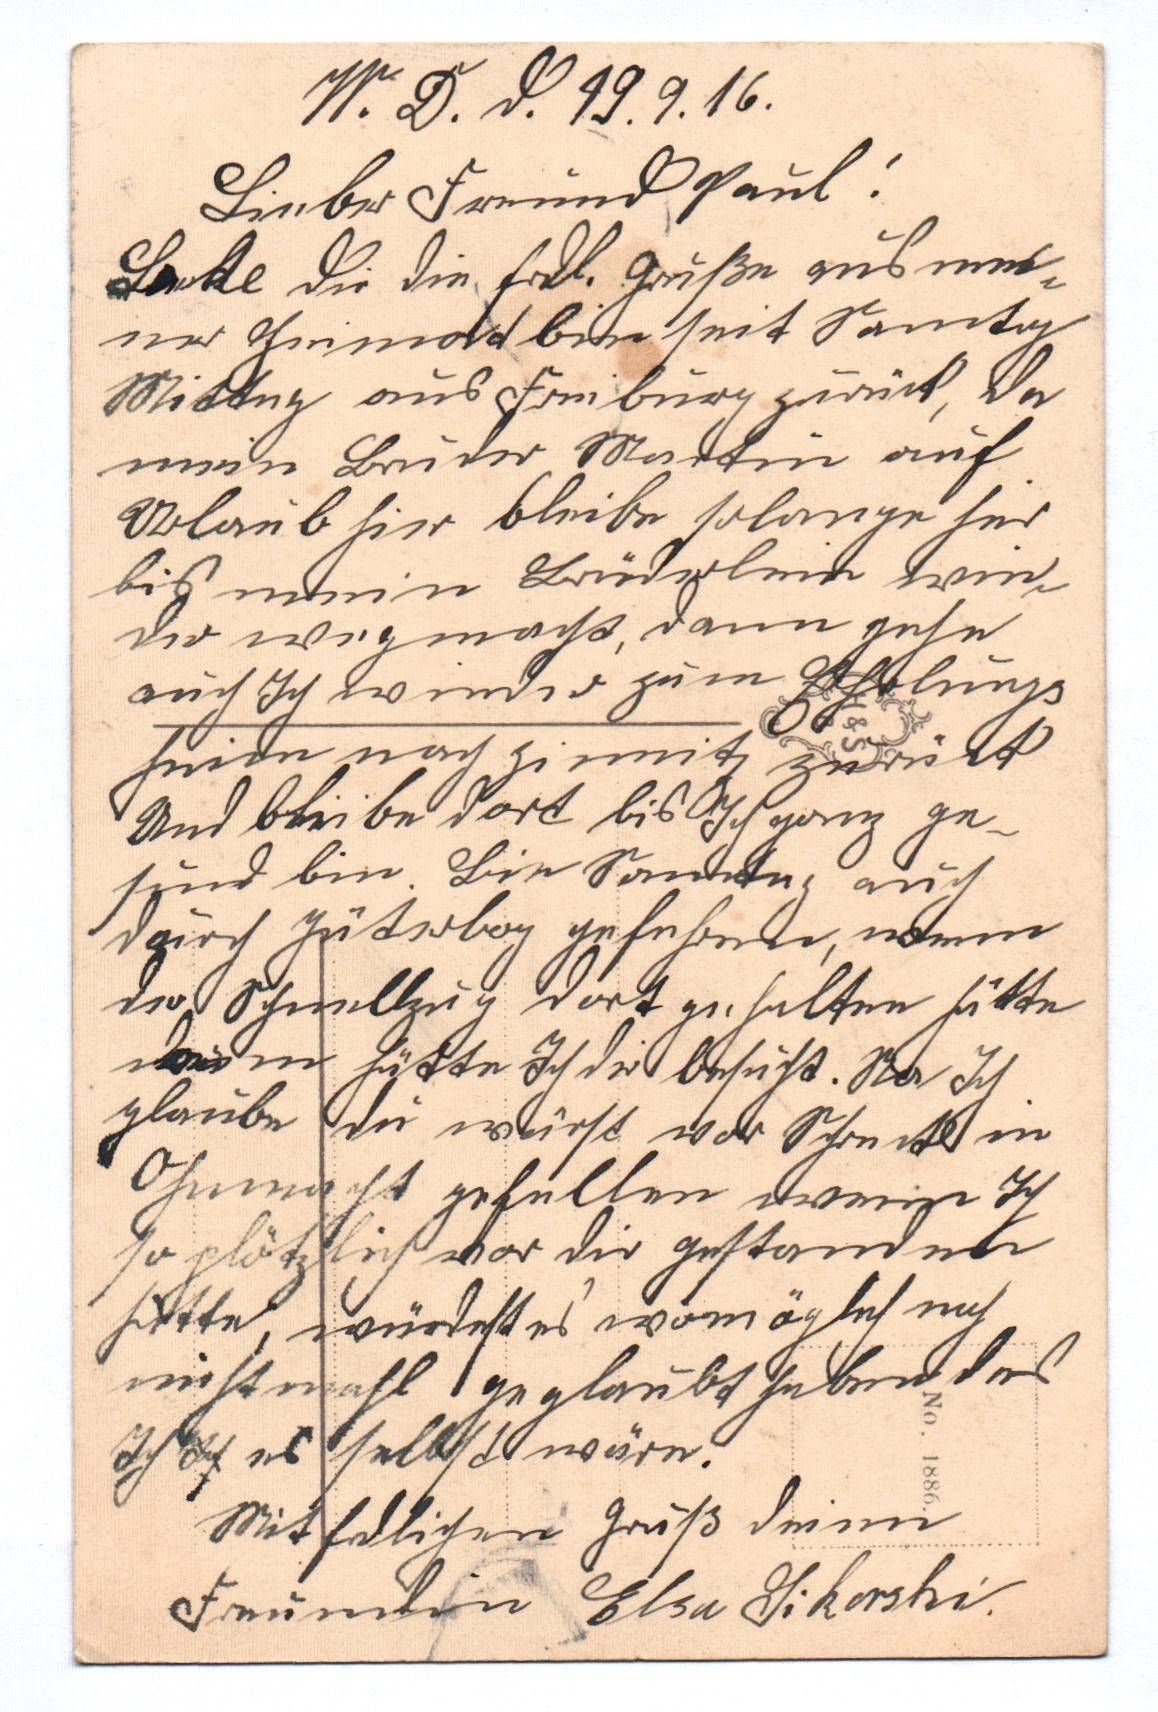 W. D. d. 19.9.16.
Lieber Freund Paul!
Sende Dir die frdl. Grüße aus mei-
ner Heimad bin seit Samtag
Mittag aus Freiburg zurück, da
mein Bruder Martin auf
Urlaub hier bleibe solange hier
bis mein Brüderlein wie-
der wegmacht, dann gehe
auch Ich wieder zum Erholungs
heim nach zurück
Und bleibe dort bis Ich ganz ge-
sund bin. Bin Samtag auch
durch Jüterbog gefahren, wenn
der Schnellzug dort gehalten hätte
dann hätte Ich dir besucht. Na Ich
glaube du wärst vor Schreck in
Ohnmacht gefallen wenn Ich
so plötzlich vor dir gestanden
hätte, würdest es womöglich noch
nicht mahl geglaubt haben das
Ich es selbst wäre.
Mit fdlichen Gruß deine
Freundin Elsa Sikorski.
&
No. 1886.